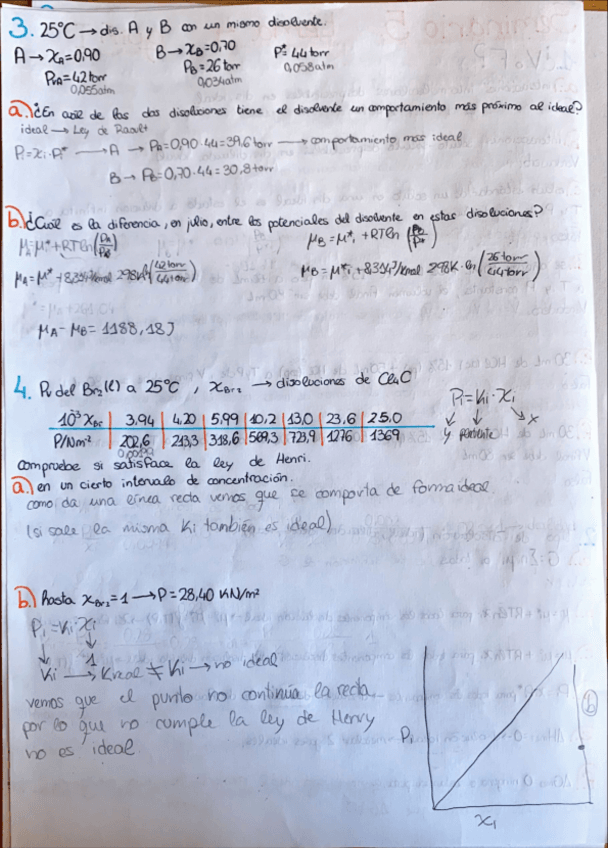 3. 25°C → dis. A y B con un mismo disolvente.
A → xA = 0,90 B → xB = 0,70 P* = 44 torr
PVA = 42 torr PB = 26 torr 0,058 atm
0,055 atm 0,034 atm
a. ¿En cuál de las dos disoluciones tiene el disolvente un comportamiento más próximo al ideal?
ideal → Ley de Raoult
Pi = xi · Pi* → A → PA = 0,90 · 44 = 39,6 torr → comportamiento mas ideal
B → PB = 0,70 · 44 = 30,8 torr
b. ¿Cuál es la diferencia, en julio, entre los potenciales del disolvente en estas disoluciones?
μA = μ* + RT ln (PA/P*) μB = μ*i + RT ln (PB/P*)
μA = μ* + 8,314 J/Kmol 298K ln (42 torr/44 torr) μB = μ*i + 8,314 J/Kmol 298K · ln (26 torr/44 torr)
μA - μB = 1188,18 J
4. Pv del Br2(l) a 25°C, xBr2 → disoluciones de Cl4C
Pi = Ki · xi
10³ xBr 3,94 4,20 5,99 10,2 13,0 23,6 25,0
y pendiente x
P/Nm² 202,6 213,3 318,6 569,3 723,9 1276 1369
compruebe si satisface la ley de Henri.
a. en un cierto intervalo de concentración.
como da una línea recta vemos que se comporta de forma ideal
(si sale la misma Ki también es ideal)
b. hasta xBr2 = 1 → P = 28,40 KN/m²
Pi = Ki · xi
1
Ki → Kreal ≠ Ki → no ideal
vemos que el punto no continúa la recta
por lo que no cumple la ley de Henry
no es ideal.
b
Pi
xi